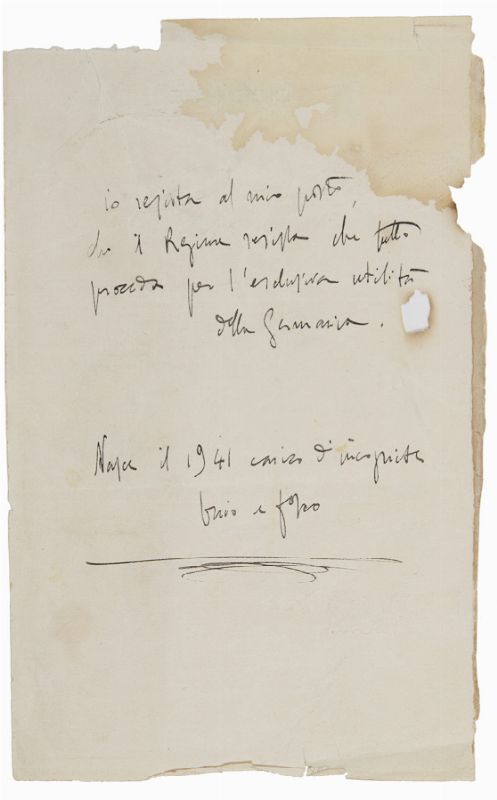 io resista al mio posto,
che il Regime resista che tutto
proceda per l'esclusiva utilità
della Germania.
Nasce il 1941 carico d'incognite
buio e fosco